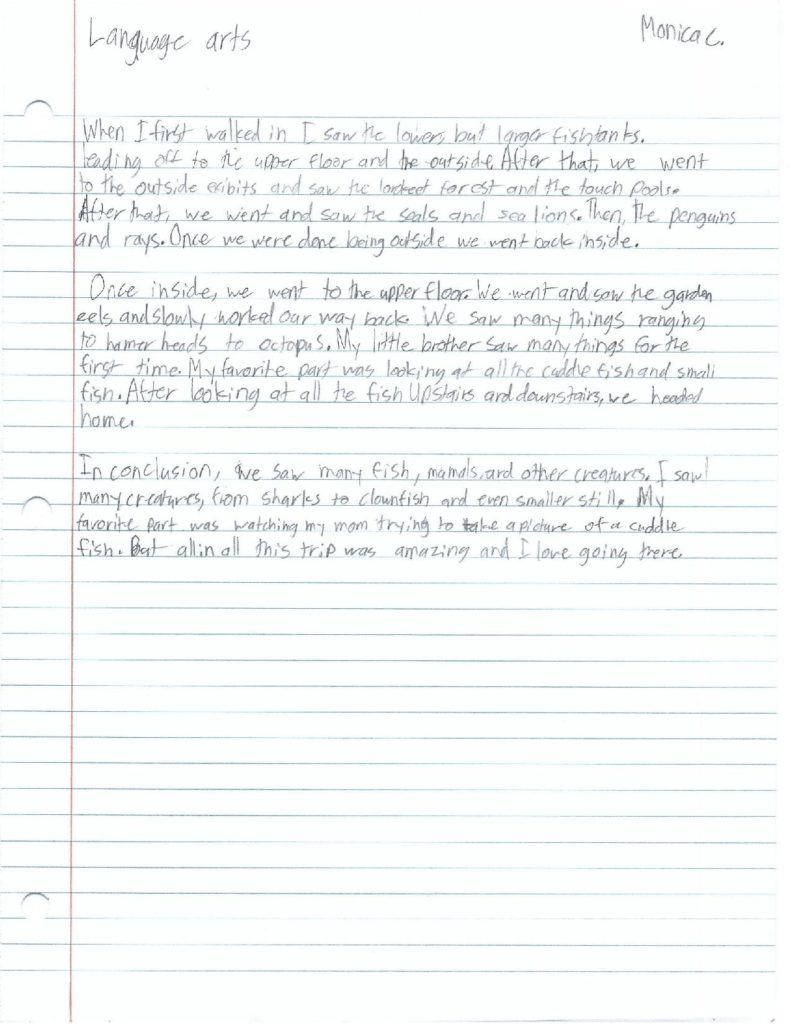 Language arts
Monica C.
When I first walked in I saw the lower, but larger fishtanks.
leading off to the upper floor and the outside. After that, we went
to the outside exibits and saw the forest and the touch pools.
After that, we went and saw the seals and sea lions. Then, the penguins
and rays. Once we were done being outside we went back inside.
Once inside, we went to the upper floor. We went and saw the garden
eels, and slowly worked our way back. We saw many things ranging
to hamor heads to octopus. My little brother saw many things for the
first time. My favorite part was looking at all the cuddle fish and small
fish. After looking at all the fish Upstairs and downstairs, we headed
home.
In conclusion, we saw many fish, mamals, and other creatures. I saw
many creatures, from sharks to clownfish and even smaller still. My
favorite part was watching my mom trying to take a picture of a cuddle
fish. But all in all this trip was amazing and I love going there.